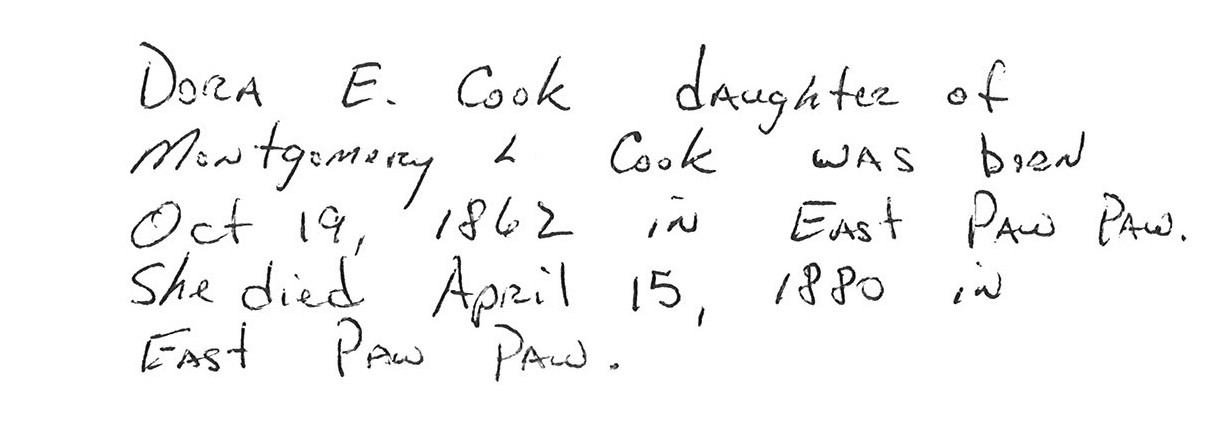 Dora E. Cook daughter of
Montgomery L Cook was born
Oct 19, 1862 in East Paw Paw.
She died April 15, 1880 in
East Paw Paw.